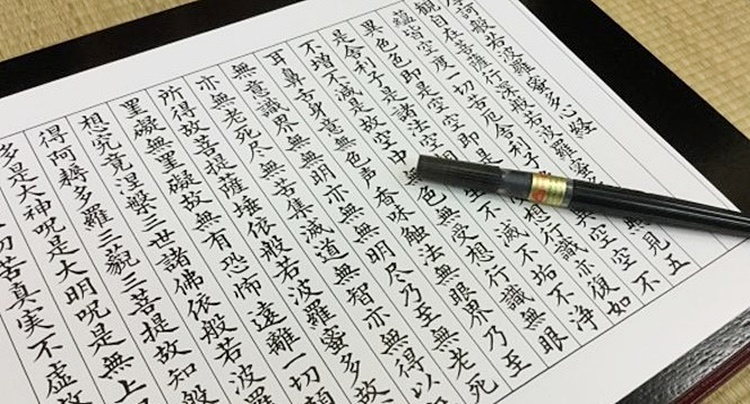 訶般若波羅蜜多心経
観自在菩薩行深般若波羅蜜見五
蘊皆空度一切苦厄舎利子空空不
異色色即是空空即是想行識亦復如
是舎利子是諸法空不滅不垢不浄
不増不減是故空中色無受想行識無眼
耳鼻舌身意無色声香味触法無眼界乃至
無意識界無無明亦無無明尽乃至無老死
亦無老死尽無苦集滅道無智亦無得以
所得故菩提薩埵依般若波羅蜜多故
罣礙無罣礙故無有恐怖遠離一切顛
想究竟涅槃三世諸佛依般若波羅
得阿耨多羅三藐三菩提故知般
多是大神呪是大明呪是無上
切苦真実不虚故